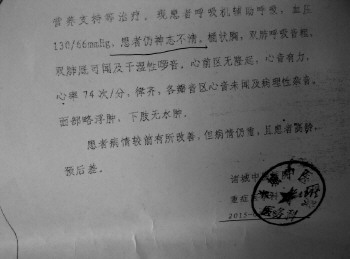 营养支持等治疗。现患者呼吸机辅助呼吸，血压
130/66mmHg，患者仍神志不清，桶状胸，双肺呼吸音粗，
双肺底可闻及干湿性啰音。心前区无隆起，心音有力，
心率74次/分，律齐，各瓣音区心音未闻及病理性杂音。
面部略浮肿，下肢无水肿。
患者病情较前有所改善，但病情仍重，且患者高龄，
预后差。
诸城中医
重症医
2015
医务科